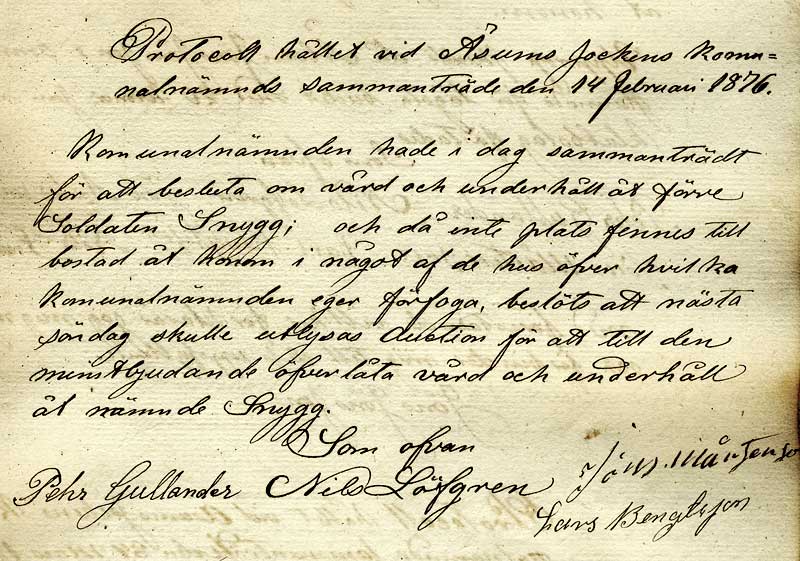 Protocoll hållet vid Åsums Sockens Komu=
nalnämnds sammanträde den 14 Februari 1876.
Komunalnämnden hade i dag sammanträdt
för att besluta om vård och underhåll åt förre
Soldaten Snygg; och då inte plats finnes till
bostad åt honom i något af de hus öfver hvilka
Komunalnämnden eger förfoga, beslöts att nästa
söndag skulle utlysas Auction för att till den
minstbjudande öfverlåta vård och underhåll
åt nämnde Snygg.
Som ofvan
Pehr Gullander Nils Löfgren Jöns Mårtenso
Lars Bengtsson